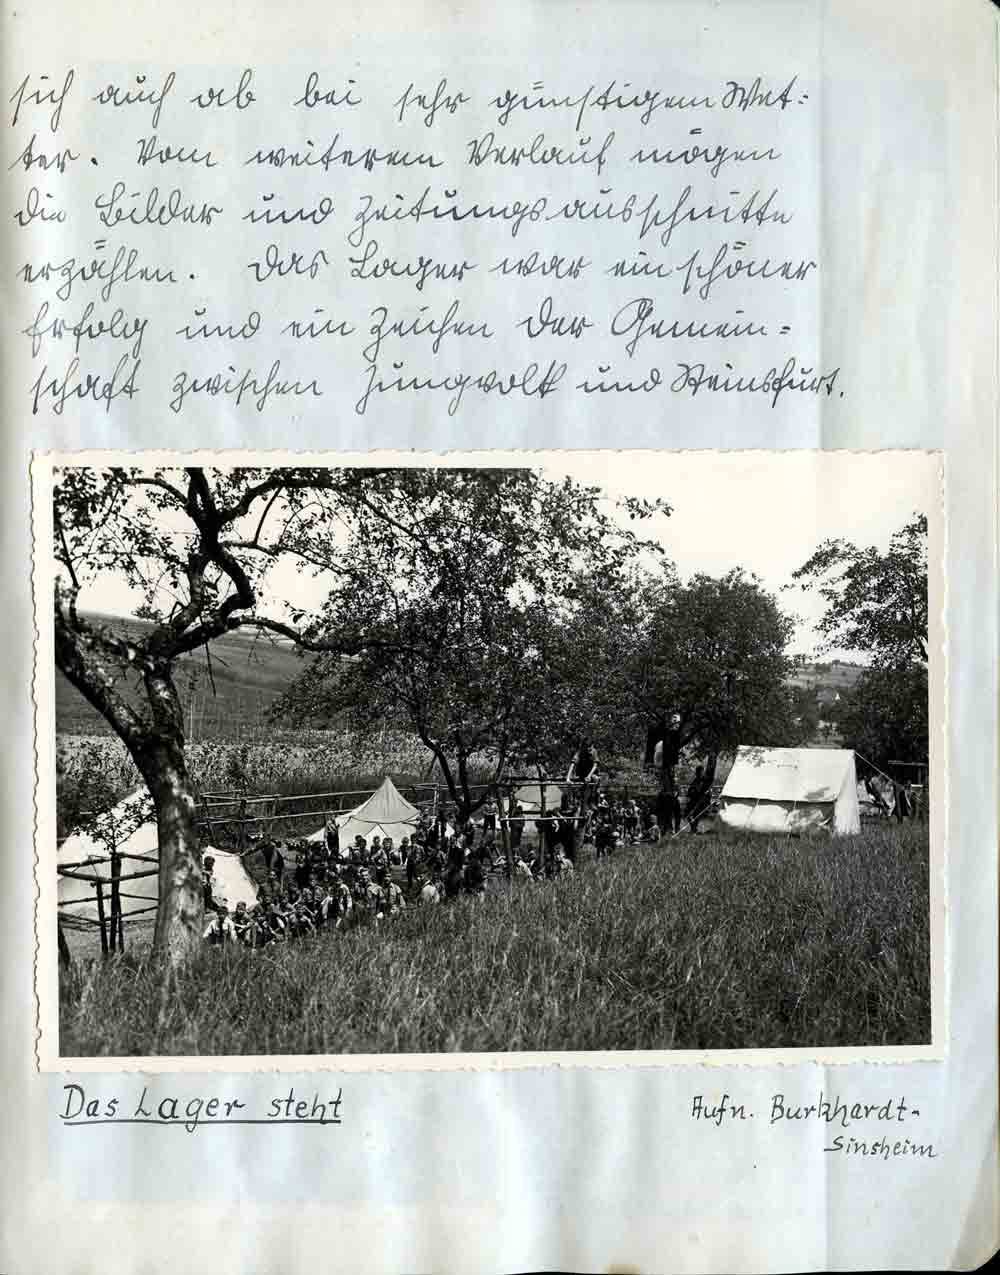 sich auch ab bei sehr günstigem Wet=
ter. Vom weiterem Verlauf mögen
die Bilder und Zeitungsausschnitte
erzählen. Das Lager war ein schöner
Erfolg und ein Zeichen der Gemein=
schaft zwischen Jungvolk und Steinsfurt.
Das Lager steht
Aufn. Burkhardt-
Sinsheim